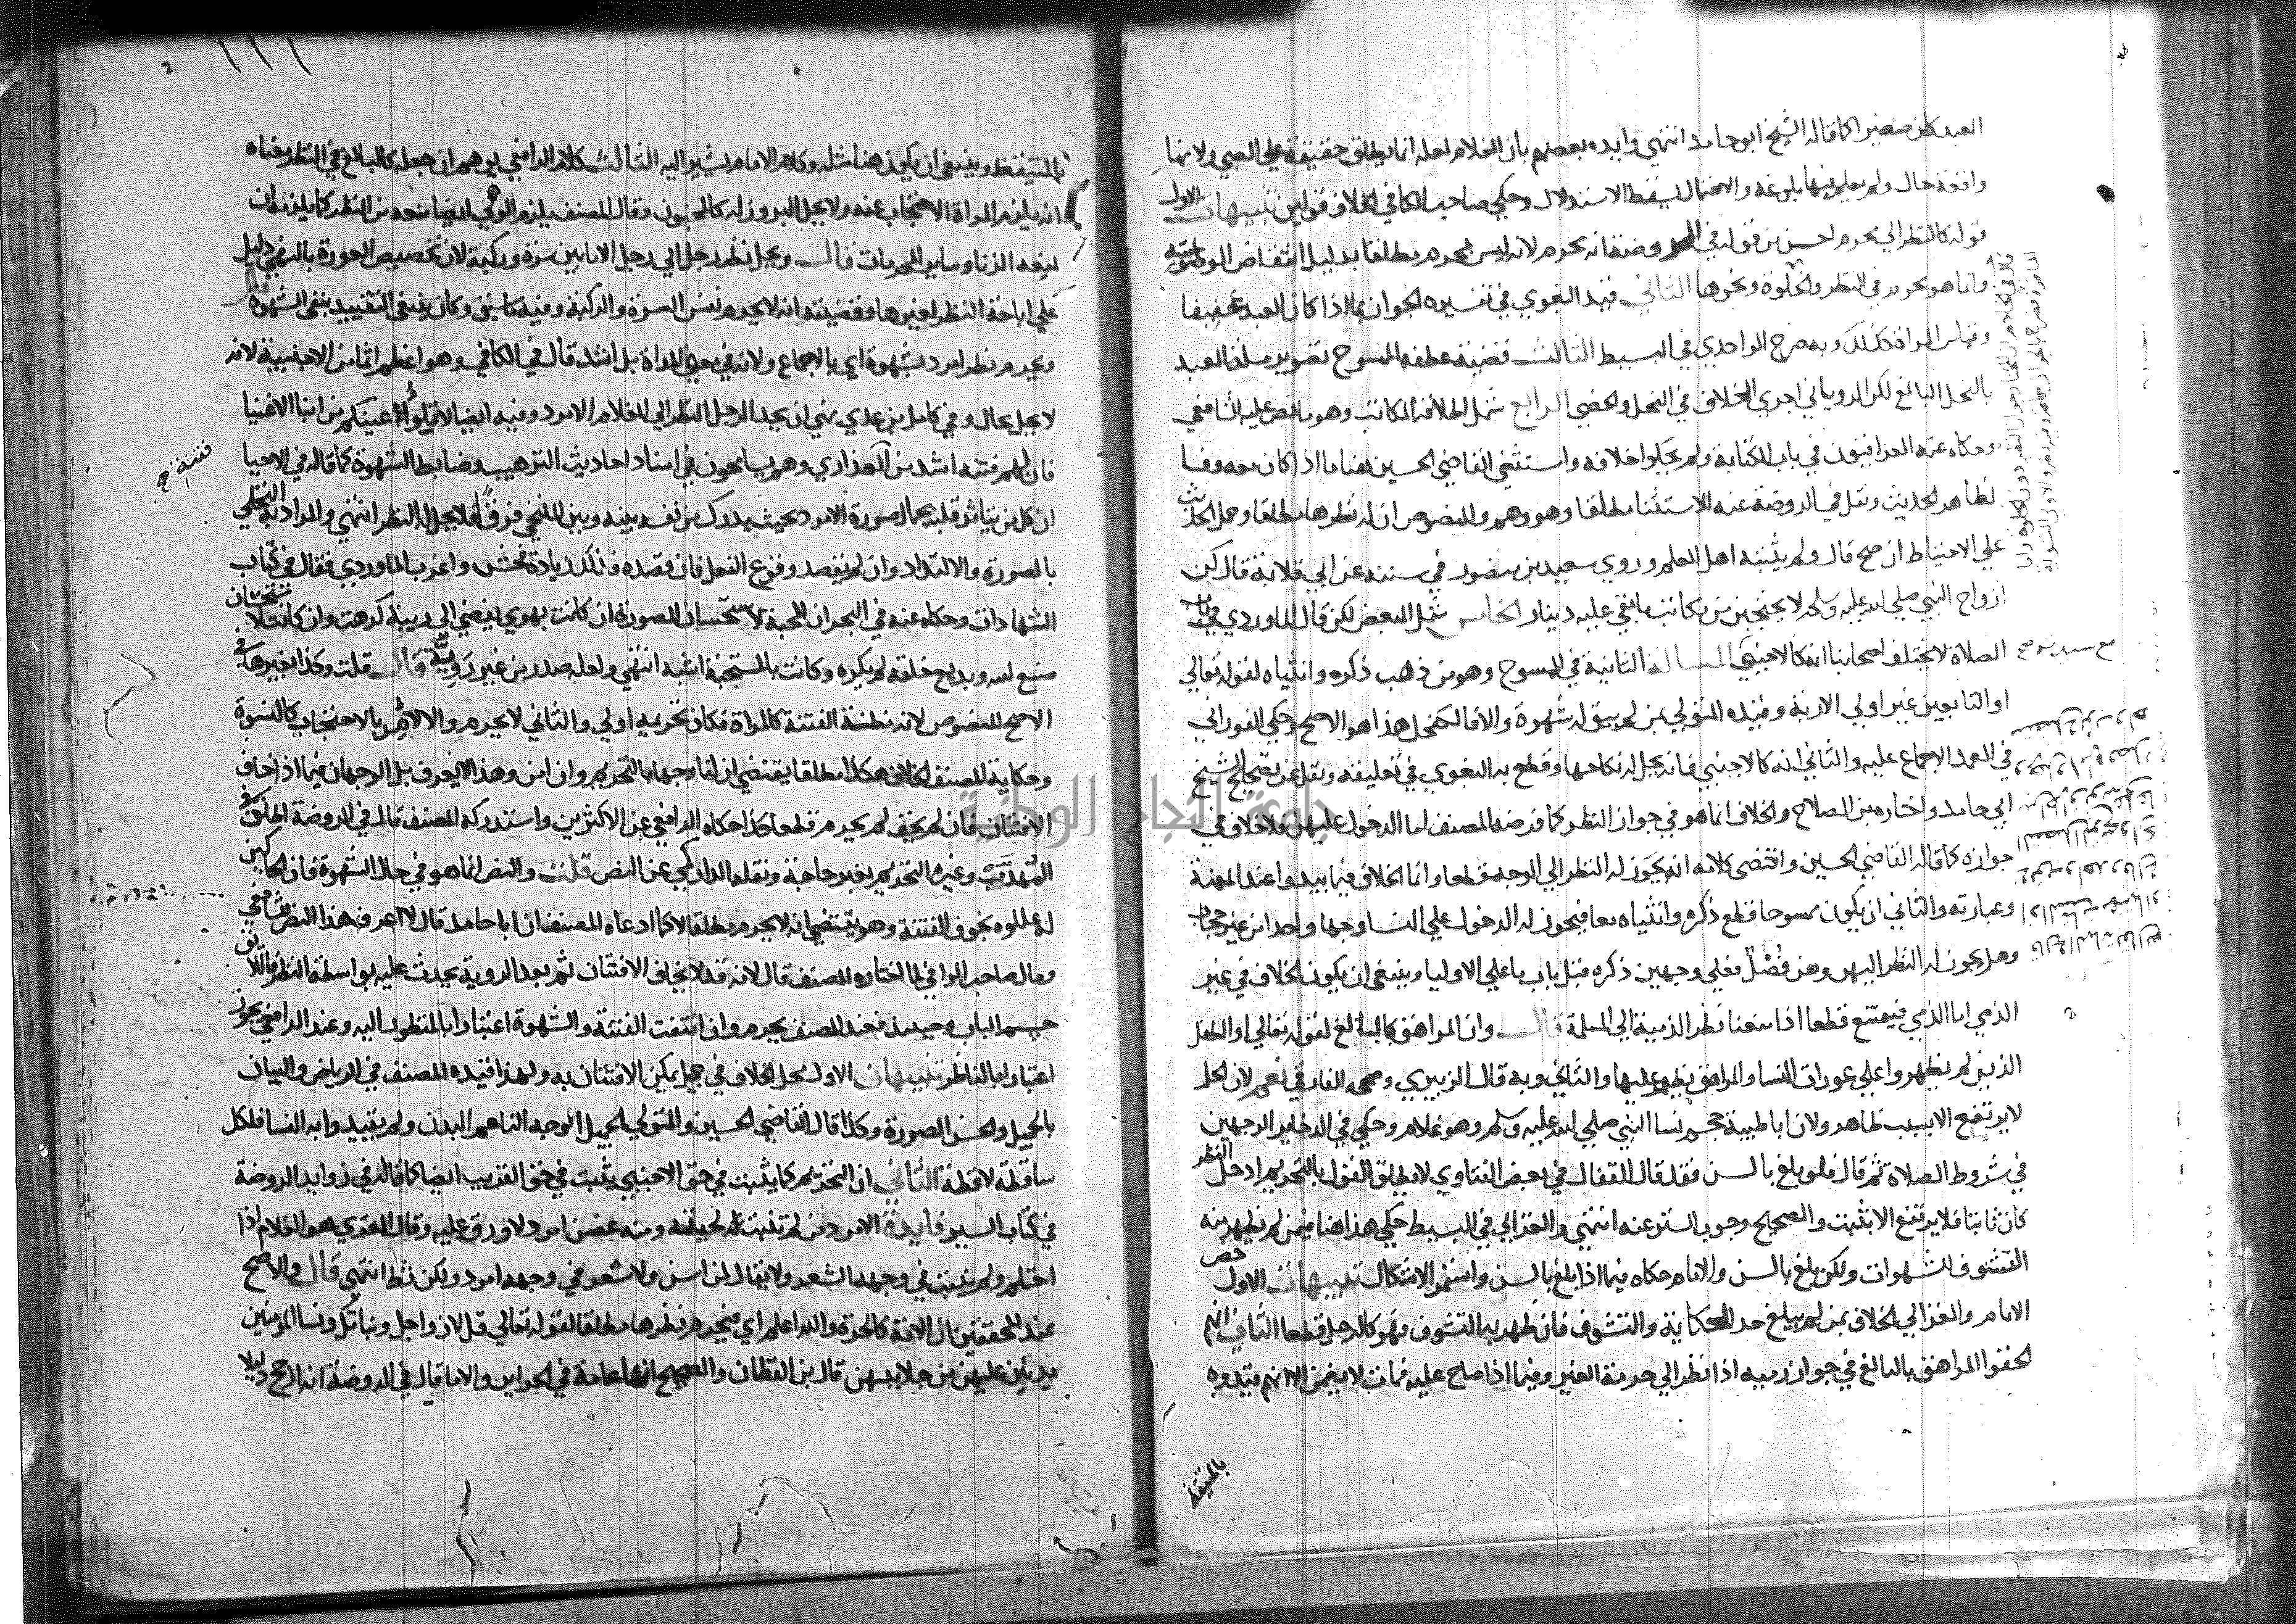 العبد كان صغيرا كما قاله الشيخ ابو حامد انتهي وايده بعضهم بان الغلام لعله انما يطلق حقيقة علي الصبي ولانها
واقعة حال ولم يعلم فيها بلوغه والاحتمال يسقط الاستدلال وحكي صاحب الكافي الخلاف قولين تنبيهات الاول
قوله كالنظر الي محرم احسن من قوله في الروضة انه محرم لانه ليس بمحرم مطلقا بدليل انتقاض الوضوء
وانما هو محرم في النظر والخلوة ونحوها الثاني قيد البغوي في تفسيره الجواز بما اذا كان العبد عفيفا
وقياس المراة كذلك وبه صرح الواحدي في البسيط الثالث قضية عطفه الممسوح تصوير مسلة العبد
بالفحل البالغ لكن الروياني اجري الخلاف في الفحل والخصي الرابع شمل اطلاقه المكاتب وهو ما نص عليه الشافعي
وحكاه عنه العراقيون في باب الكتابة ولم يحكوا خلافه واستثني القاضي الحسين هنا ما اذا كان معه وفا
لظاهر الحديث ونقل في الروضة عنه الاستثنا مطلقا وهو وهم والمنصوص ان له نظرها مطلقا وحمل الحديث
علي الاحتياط ان صح قال ولم يثبته اهل العلم وروي سعيد بن منصور في سننه عن ابي قلابة قال كن
ازواج النبي صلي الله عليه وسلم لا يحتجبن من مكاتب ما بقي عليه دينار الخامس شمل المبعض لكن قال الماوردي في باب
الصلاة لا يختلف اصحابنا انه كالاجنبي المسالة الثانية في الممسوح وهو من ذهب ذكره وانثياه لقوله تعالي
او التابعين غير اولي الاربة وقيده المتولي بمن لم يبق له شهوة والا فالفحل هذا هو الاصح وحكي الفوراني
في العمد الاجماع عليه والثاني انه كالاجنبي فانه يحل له نكاحها وقطع به البغوي في تعليقه ونقل عن تصحيح الشيخ
ابي حامد واختاره بن الصلاح والخلاف انما هو في جواز النظر كما فرضه المصنف اما الدخول عليهن فلا خلاف في
جوازه كما قاله القاضي الحسين واقتضي كلامه انه يجوز له النظر الي الوجه قطعا وانما الخلاف فيما يبدوا عند المهنة
وعبارته والثاني ان يكون ممسوحا قطع ذكره وانثياه معا فيجوز له الدخول علي النسا وجها واحدا من غير حجاب
وهل يجوز له النظر اليهن وهن فضل فعلي وجهين ذكره قبل باب ما علي الاوليا وينبغي ان يكون الخلاف في غير
الذمي اما الذمي فيمتنع قطعا اذا منعنا نظر الذمية الي المسلمة قال وان المراهق كالبالغ لقوله تعالي او الطفل
الذين لم يظهروا علي عورات النسا والمراهق يظهر عليها والثاني وبه قال الزبيري وصححه الفارقي نعم لان الحل
لا يرتفع الا بسبب ظاهر ولان ابا طيبة حجم نسا النبي صلي الله عليه وسلم وهو غلام وحكي في الدخاير الوجهين
في شروط الصلاة ثم قال فلو بلغ بالسن فقد قال القفال في بعض الفتاوي لا يطلق القول بالتحريم اذ حل النظر
كان ثابتا فلا يرتفع الا بثبت والصحيح وجوب الستر عنه انتهي والغزالي في البسيط حكي هذا هنا فيمن لم يظهر منه
التشوف للشهوات ولكن بلغ بالسن والامام حكاه فيما اذا بلغ بالسن واستمر الاشكال تنبيهات الاول خص
الامام والغزالي الخلاف بمن لم يبلغ حد الحكاية والتشوف فان ظهر به التشوف فهو كالرجل قطعا الثاني انهم
الحقوا المراهق بالبالغ في جواز رميه اذا نظر الي حرمة الغير وفيما اذا صاح عليه فمات لا يضمن الا انهم قيدوه
بالمتيقظ
بالمتيقظ وينبغي ان يكون هنا مثله وكلام الامام يشير اليه الثالث كلام الرافعي يوهم ان جعله كالبالغ في النظر معناه
انه يلزم المراة الاحتجاب عنه ولا يحل البروز له كالمجنون وقال المصنف يلزم الولي ايضا منعه من النظر كما يلزمه ان
يمنعه الزنا وساير المحرمات قال ويحل نظر رجل الي رجل الا ما بين سرة وركبة لان تخصيص العورة بالنهي دليل
علي اباحة النظر لغيرها وقضيته انه لا يحرم نفس السرة والركبة وفيه ما سبق وكان ينبغي التقييد بنفي الشهوة
ويحرم نظر امرد بشهوة اي بالاجماع ولانه في معني المراة بل اشد قال في الكافي وهو اعظم اثما من الاجنبية لانه
لا يحل بحال وفي كامل بن عدي نهي ان يحد الرجل النظر الي الغلام الامرد وفيه ايضا لا تملوا اعينكم من ابنا الاغنيا
فان لهم فتنة اشد من العذاري وهم يسامحون في اسناد احاديث الترهيب وضابط الشهوة كما قاله في الاحيا
ان كل من يتاثر قلبه بجمال صورة الامرد بحيث يدرك من نفسه بينه وبين الملتحي فرقا فلا يحل له النظر انتهي والمراد به التخلي
بالصورة والالتذاد وان لم يقصد وقوع الفعل فان قصده فذلك زيادة فحش واغرب الماوردي فقال في كتاب
الشهادات وحكاه عنه في البحر ان المحبة لاستحسان الصورة ان كانت بهوي يفضي الي ريبة كرهت وان كانت لاستحسان
صنع الله وبديع خلقه لم يكره وكانت بالمستحبة اشبه انتهي ولعله صدر من غير روية قال قلت وكذا بغيرها في
الاصح المنصوص لانه مظنة الفتنة كالمراة فكان تحريمه اولي والثاني لا يحرم والا لامر بالاحتجاب كالنسوة
وحكاية المصنف الخلاف هكذا مطلقا يقتضي ان لنا وجها بالتحريم وان امن وهذا لا يعرف بل الوجهان فيما اذا خاف
الافتتان فان لم يخف لم يحرم قطعا كذا حكاه الرافعي عن الاكثرين واستدركه المصنف قال في الروضة اطلق في
المهذب وغيره التحريم بغير حاجة ونقله الداركي عن النص قلت والنص انما هو في حال الشهوة فان الحاكين
له عللوه بخوف الفتنة وهو يقتضي انه لا يحرم مطلقا لا كما ادعاه المصنف ان ابا حامد قال لا اعرف هذا النص للشافعي
ومال صاحب الوافي لما اختاره المصنف قال لانه قد لا يخاف الافتتان ثم بعد الروية يحدث عليه بواسطة النظر فاللايق
حسم الباب وحينيذ فعند المصنف يحرم وان انتفت الفتنة والشهوة اعتبارا بالمنظور اليه وعند الرافعي يجوز
اعتبارا بالناظر تنبيهان الاول محل الخلاف في جميل يمكن الافتتان به ولهذا قيده المصنف في الرياض والتبيان
بالجميل والحسن الصورة وكذا قال القاضي الحسين والمتولي الجميل الوجه الناعم البدن ولم يقيدوا به النسا فلكل
ساقطة لاقطة الثاني ان التحريم كما يثبت في حق الاجنبي يثبت في حق القريب ايضا كما قاله في زوايد الروضة
في كتاب السير فايدة الامرد من لم تنبت لحيته ومنه غصن امرد لا ورق عليه وقال الغنوي هو الغلام اذا
احتلم ولم ينبت في وجهه الشعر ولا يقال لمن اسن ولا شعر في وجهه امرد ولكن ثط انتهي قال والاصح
عند المحققين ان الامة كالحرة والله اعلم اي فيحرم نظرها مطلقا لقوله تعالي قل لازواجك وبناتك ونسا المومنين
يدنين عليهن من جلابيبهن قال بن القطان والصحيح انها عامة في الحراير والاما قال في الروضة انه ارجح دليلا